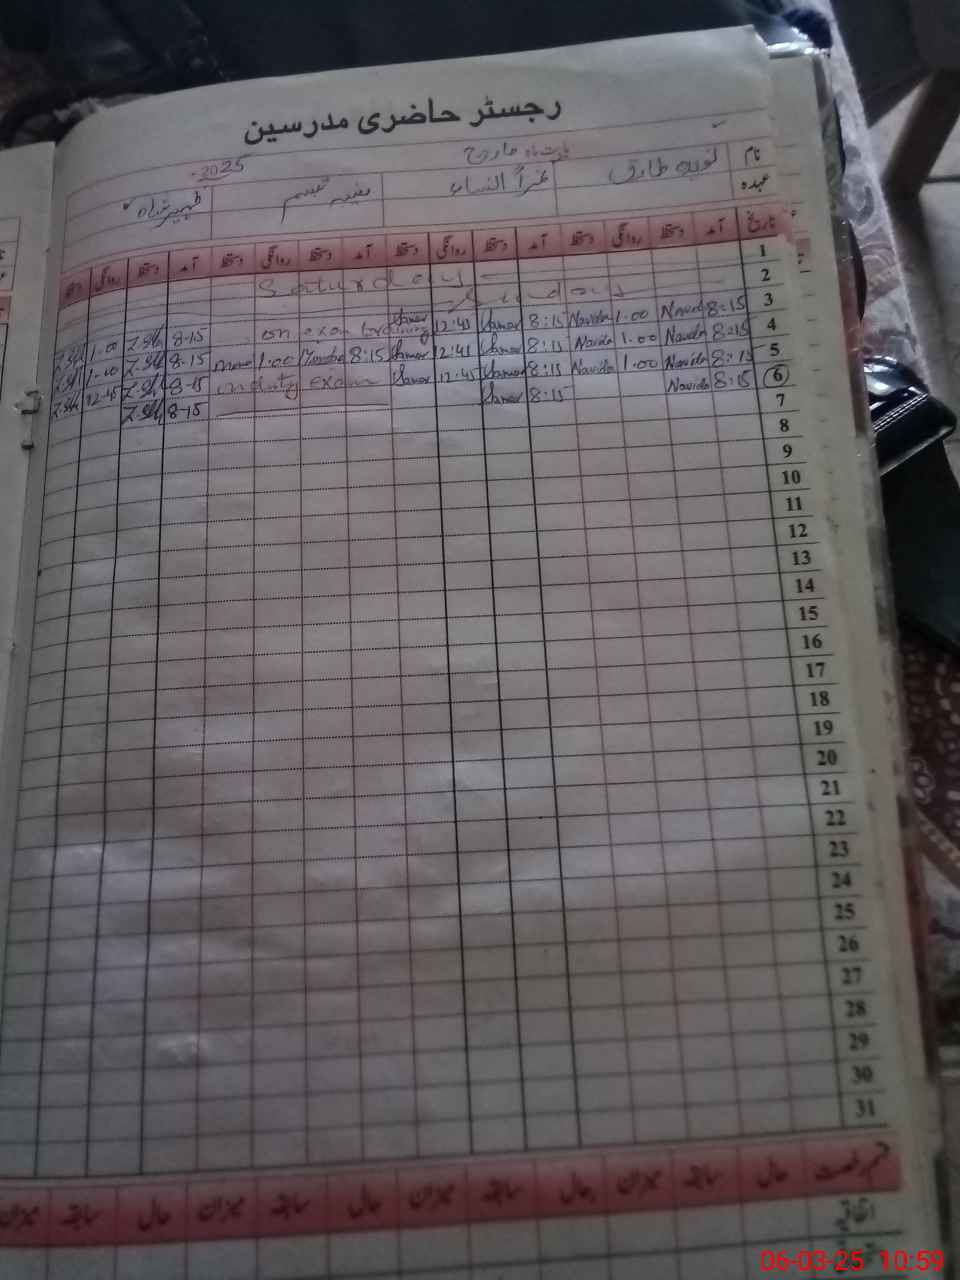 رجسٹر حاضری مدرسین
بابت ماہ مارچ 2025
نام نویدہ طارق ثمرۃ النساء تبسم ظہیر شاہ
عہدہ
تاریخ آمد دستخط روانگی دستخط آمد دستخط روانگی دستخط آمد دستخط روانگی دستخط آمد دستخط روانگی دستخط
1 Saturday
2 Sunday
3 8:15 Navida 1.00 Navida 8:15 Samar 12:45 Samar on exam training 8-15 1.00
4 8:15 Navida 1.00 Navida 8:15 Samar 12:45 Samar 8:15 1.00 8-15 1.00
5 8:15 Navida 1.00 Navida 8:15 Samar 12:45 Samar on duty exam 8-15 12-45
6 8:15 Navida 8:15 Samar 8-15
7
8
9
10
11
12
13
14
15
16
17
18
19
20
21
22
23
24
25
26
27
28
29
30
31
قسم رخصت حال سابقہ میزان حال سابقہ میزان حال سابقہ میزان حال سابقہ میزان
اتفاقیہ
06-03-25 10:59